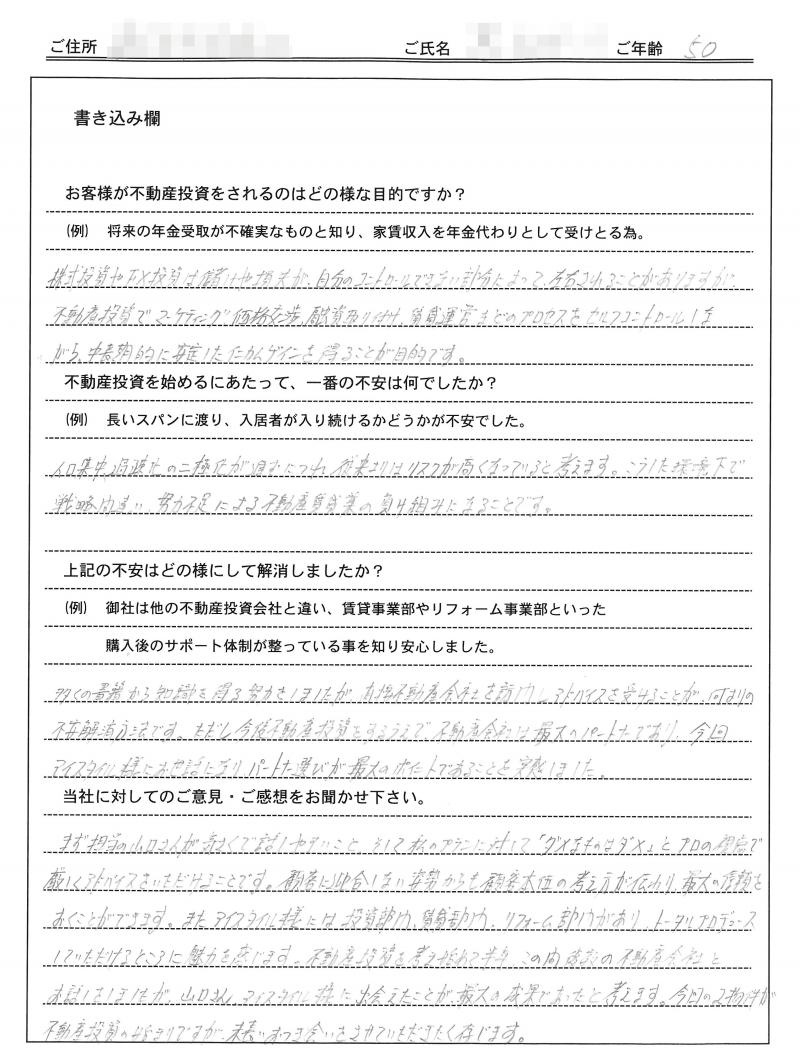 ご住所 ご氏名 ご年齢 50
書き込み欄
お客様が不動産投資をされるのはどの様な目的ですか？
(例) 将来の年金受取が不確実なものと知り、家賃収入を年金代わりとして受けとる為。
株式投資やFX投資は儲けや損失が、自分のコントロールできない部分によって、左右されることがありますが、
不動産投資でマーケティング、価格交渉、融資取り付け、賃貸運営などのプロセスをセルフコントロールしな
がら、中長期的に安定したインカムゲインを得ることが目的です。
不動産投資を始めるにあたって、一番の不安は何でしたか？
(例) 長いスパンに渡り、入居者が入り続けるかどうかが不安でした。
人口集中、過疎化の二極化が進むにつれ従来よりはリスクが高くなっていると考えます。こうした環境下で
戦略間違い、努力不足による不動産賃貸業の負け組みになることです。
上記の不安はどの様にして解消しましたか？
(例) 御社は他の不動産投資会社と違い、賃貸事業部やリフォーム事業部といった
購入後のサポート体制が整っている事を知り安心しました。
多くの書籍から知識を得る努力をしましたが、直接不動産会社を訪問しアドバイスを受けることが、何よりの
不安解消方法です。ただし今後不動産投資をするうえで、不動産会社は最大のパートナーであり、今回
アイスタイル様にお世話になりパートナー選びが最大のポイントであることを実感しました。
当社に対してのご意見・ご感想をお聞かせ下さい。
まず担当の山口さんが気さくで話しやすいこと、そして私のプランに対して「ダメなものはダメ」とプロの視点で
厳しくアドバイスをいただけることです。顧客に迎合しない姿勢からも顧客本位の考え方が伝わり、最大の信頼を
おくことができます。またアイスタイル様には投資部門、賃貸部門、リフォーム部門があり、トータルプロデュース
していただけるところに魅力を感じます。不動産投資を考え始めて半年、この間複数の不動産会社と
お話しをしましたが、山口さん、アイスタイル様に出会えたことが、最大の成果であったと考えます。今回の2物件が
不動産投資の始まりですが、末長いおつき合いをさせていただきたく存じます。